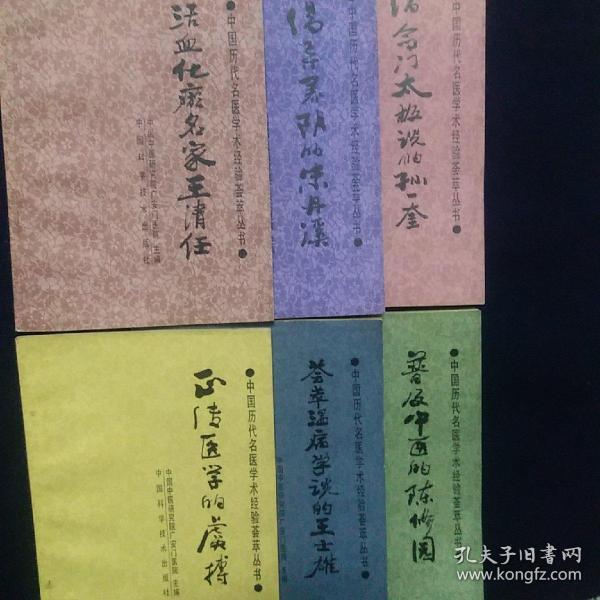 ●中国历代名医学术经验荟萃丛书●
活血化瘀名家王清任
中医研究院广安门医院 主编
中国科学技术出版社
中国历代名医学术经验荟萃丛书●
倡导养阴的朱丹溪
中国历代名医学术经验荟萃丛书●
倡命门太极说的孙一奎
●中国历代名医学术经验荟萃丛书●
正传医学的虞搏
中国中医研究院广安门医院 主编
中国科学技术出版社
●中国历代名医学术经验荟萃丛书●
荟萃温病学说的王士雄
中国中医研究院广安门医院 主编
●中国历代名医学术经验荟萃丛书●
普及中医的陈修园
孔夫子旧书网
www.kongfz.com